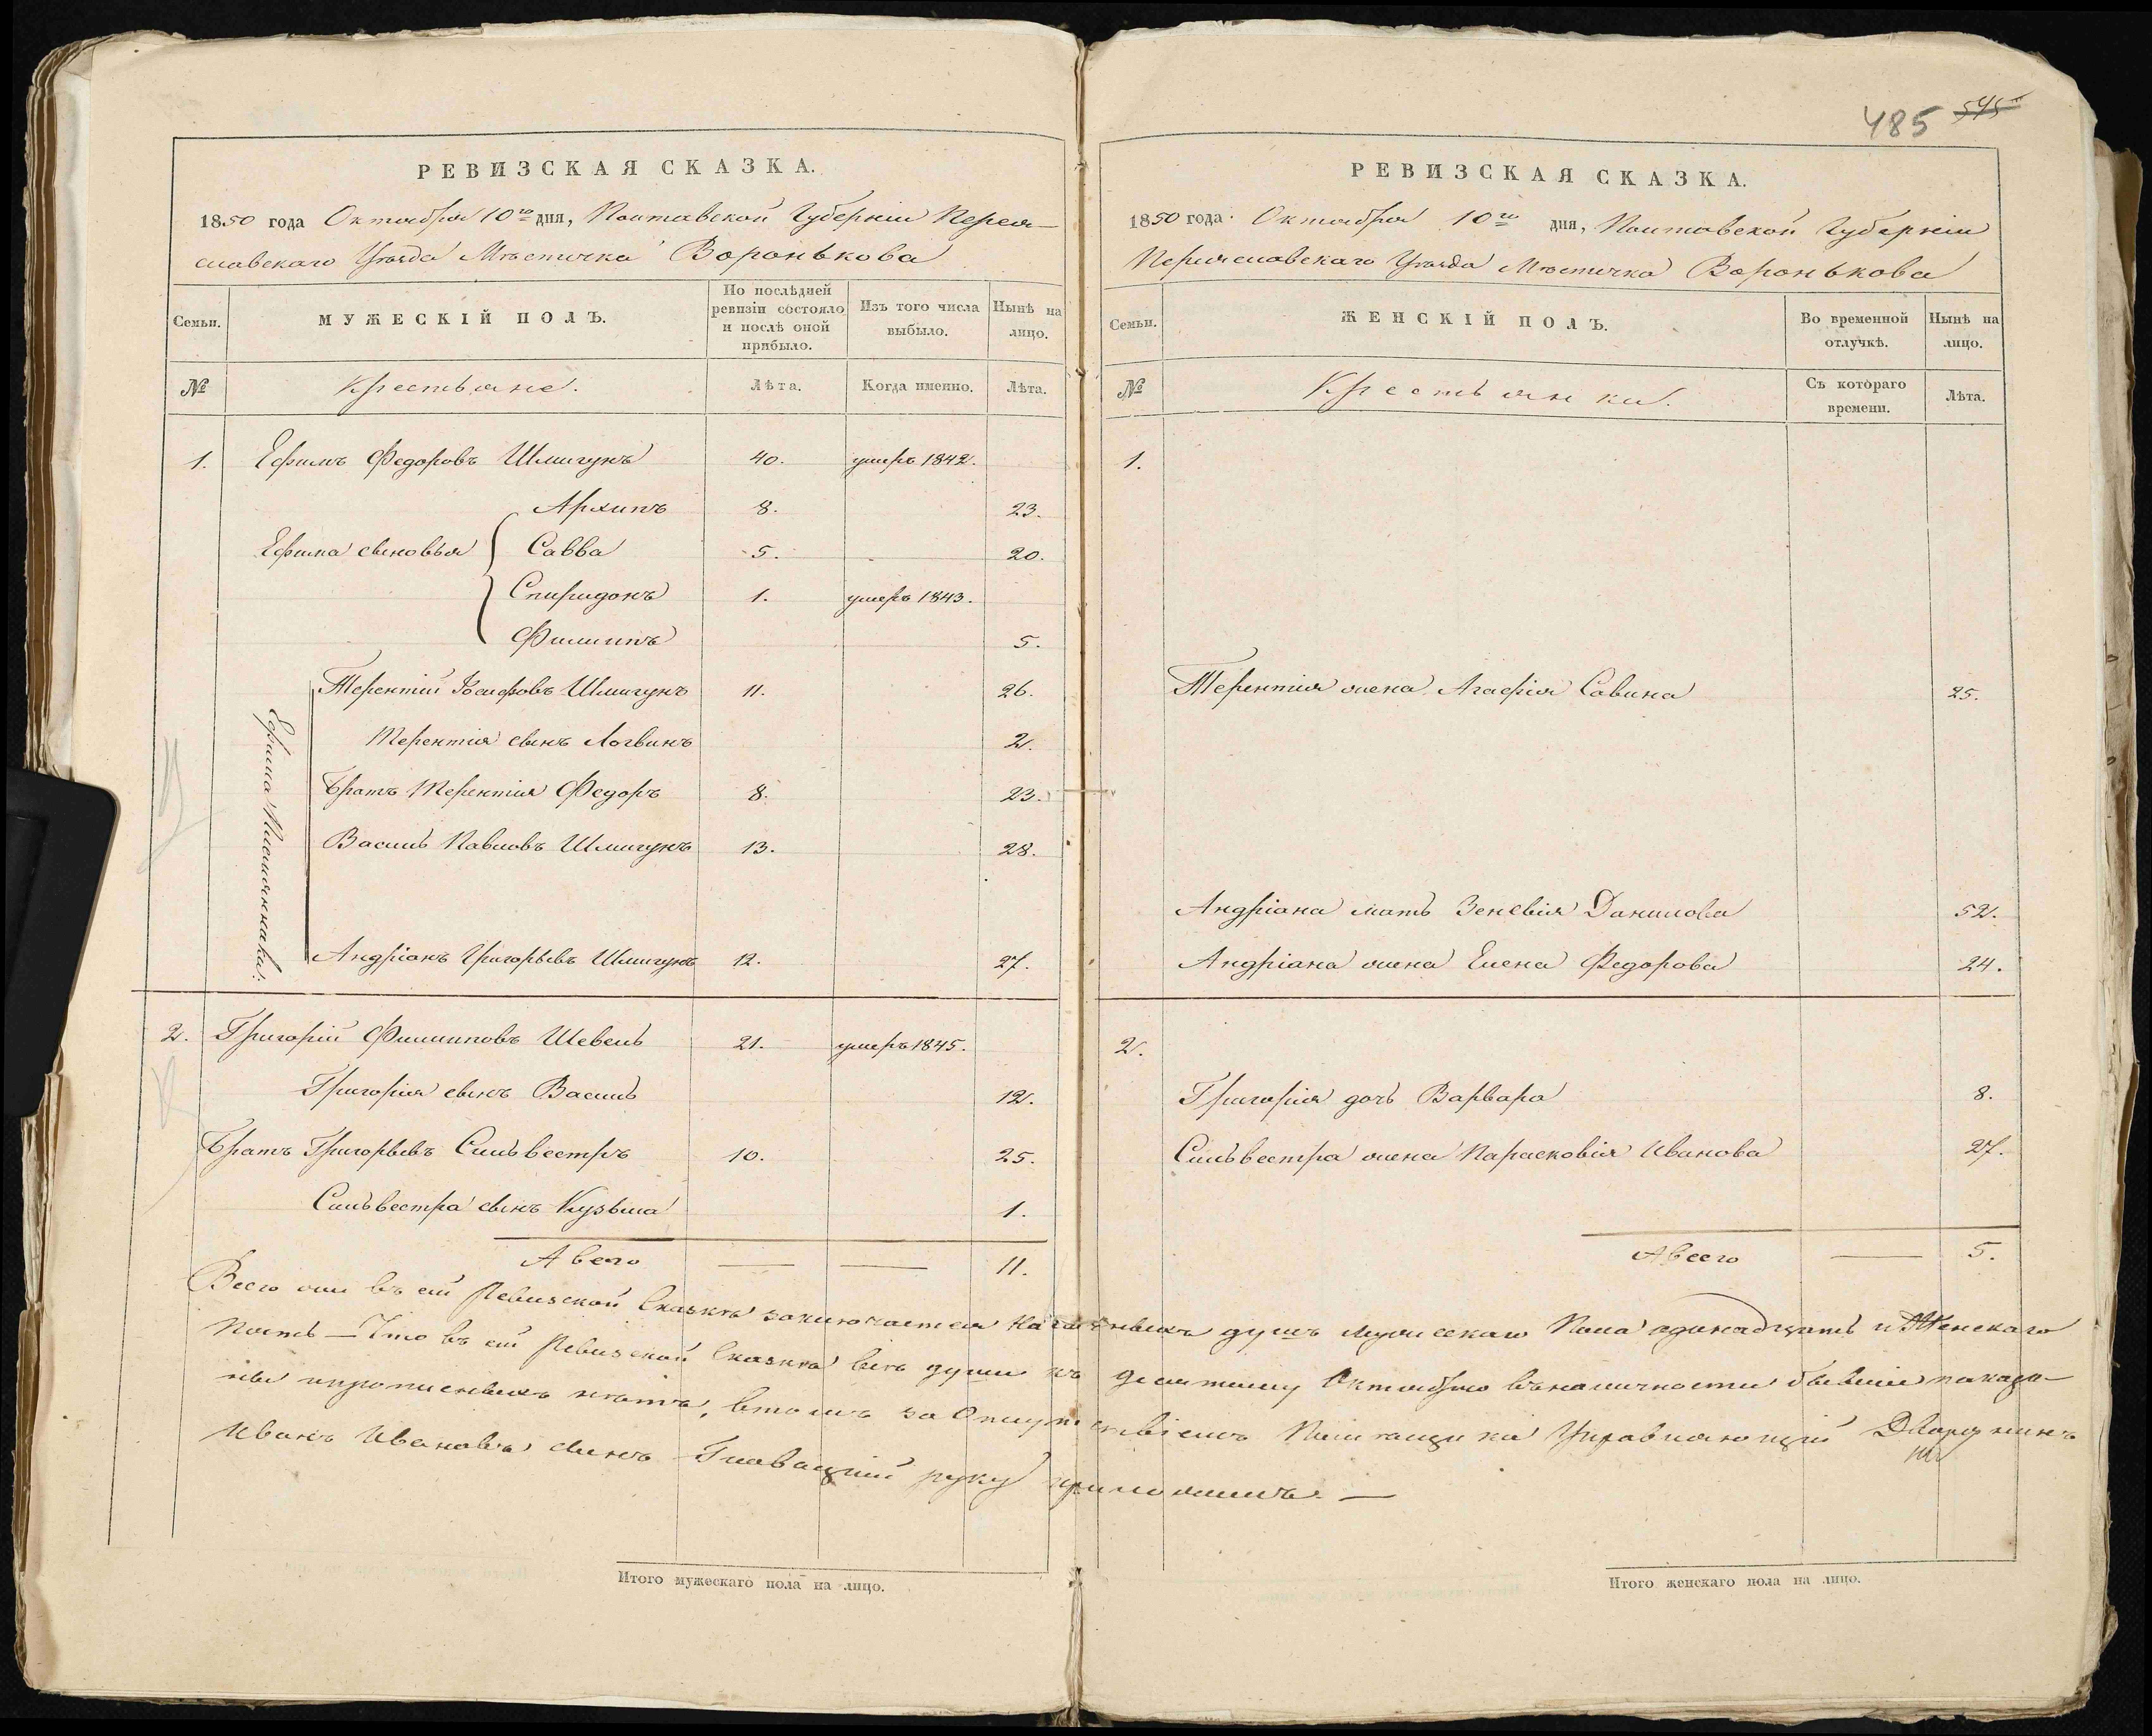 РЕВИЗСКАЯ СКАЗКА.
1850 года Октября 10го дня, Полтавской Губерніи Перея-
славскаго Уѣзда Мѣстечка Воронькова
Семьи.
МУЖЕСКІЙ ПОЛЪ.
По послѣдней ревизіи состояло и послѣ оной прибыло.
Изъ того числа выбыло.
Нынѣ на лицо.
№
Крестьяне.
Лѣта.
Когда именно.
Лѣта.
1. Ефимъ Федоровъ Шмигунъ 40. умеръ 1842.
Архипъ 8. 23.
Ефима сыновья Савва 5. 20.
Спиридонъ 1. умеръ 1843.
Филиппъ 5.
Ефима Племянники:
Терентій Іосифовъ Шмигунъ 11. 26.
Терентія сынъ Логвинъ 2.
Братъ Терентія Федоръ 8. 23.
Василь Павловъ Шмигунъ 13. 28.
Андріанъ Григорьевъ Шмигунъ 12. 27.
2. Григорій Филипповъ Шевель 21. умеръ 1845.
Григорія сынъ Василь 12.
Братъ Григорьевъ Сильвестръ 10. 25.
Сильвестра сынъ Кузьма 1.
А всего — — 11.
485 545
РЕВИЗСКАЯ СКАЗКА.
1850 года Октября 10го дня, Полтавской Губерніи
Переяславскаго Уѣзда Мѣстечка Воронькова
Семьи.
ЖЕНСКІЙ ПОЛЪ.
Во временной отлучкѣ.
Нынѣ на лицо.
№
Крестьянки.
Съ котораго времени.
Лѣта.
1.
Терентія жена Агафія Савина 25.
Андріана мать Зеневія Данилова 52.
Андріана жена Елена Федорова 24.
2.
Григорія дочь Варвара 8.
Сильвестра жена Парасковія Иванова 27.
А всего — 5.
Всего въ сей Ревизской Сказкѣ заключается наличныхъ душъ мужескаго пола одинадцать и Женскаго
пять — Что въ сей Ревизской Сказкѣ всѣ души къ десятому Октября въ наличности бывшіе показа-
ны и прописныхъ нѣтъ, въ томъ за Отсутствіемъ Помѣщика Управляющій Дворянинъ
Иванъ Ивановъ сынъ руку приложилъ. —
Итого мужескаго пола на лицо.
Итого женскаго пола на лицо.